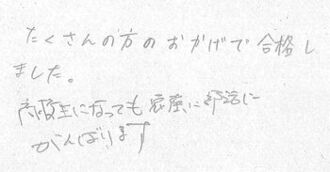 たくさんの方のおかげで合格し
ました。
高校生になっても勉強に部活に
がんばります